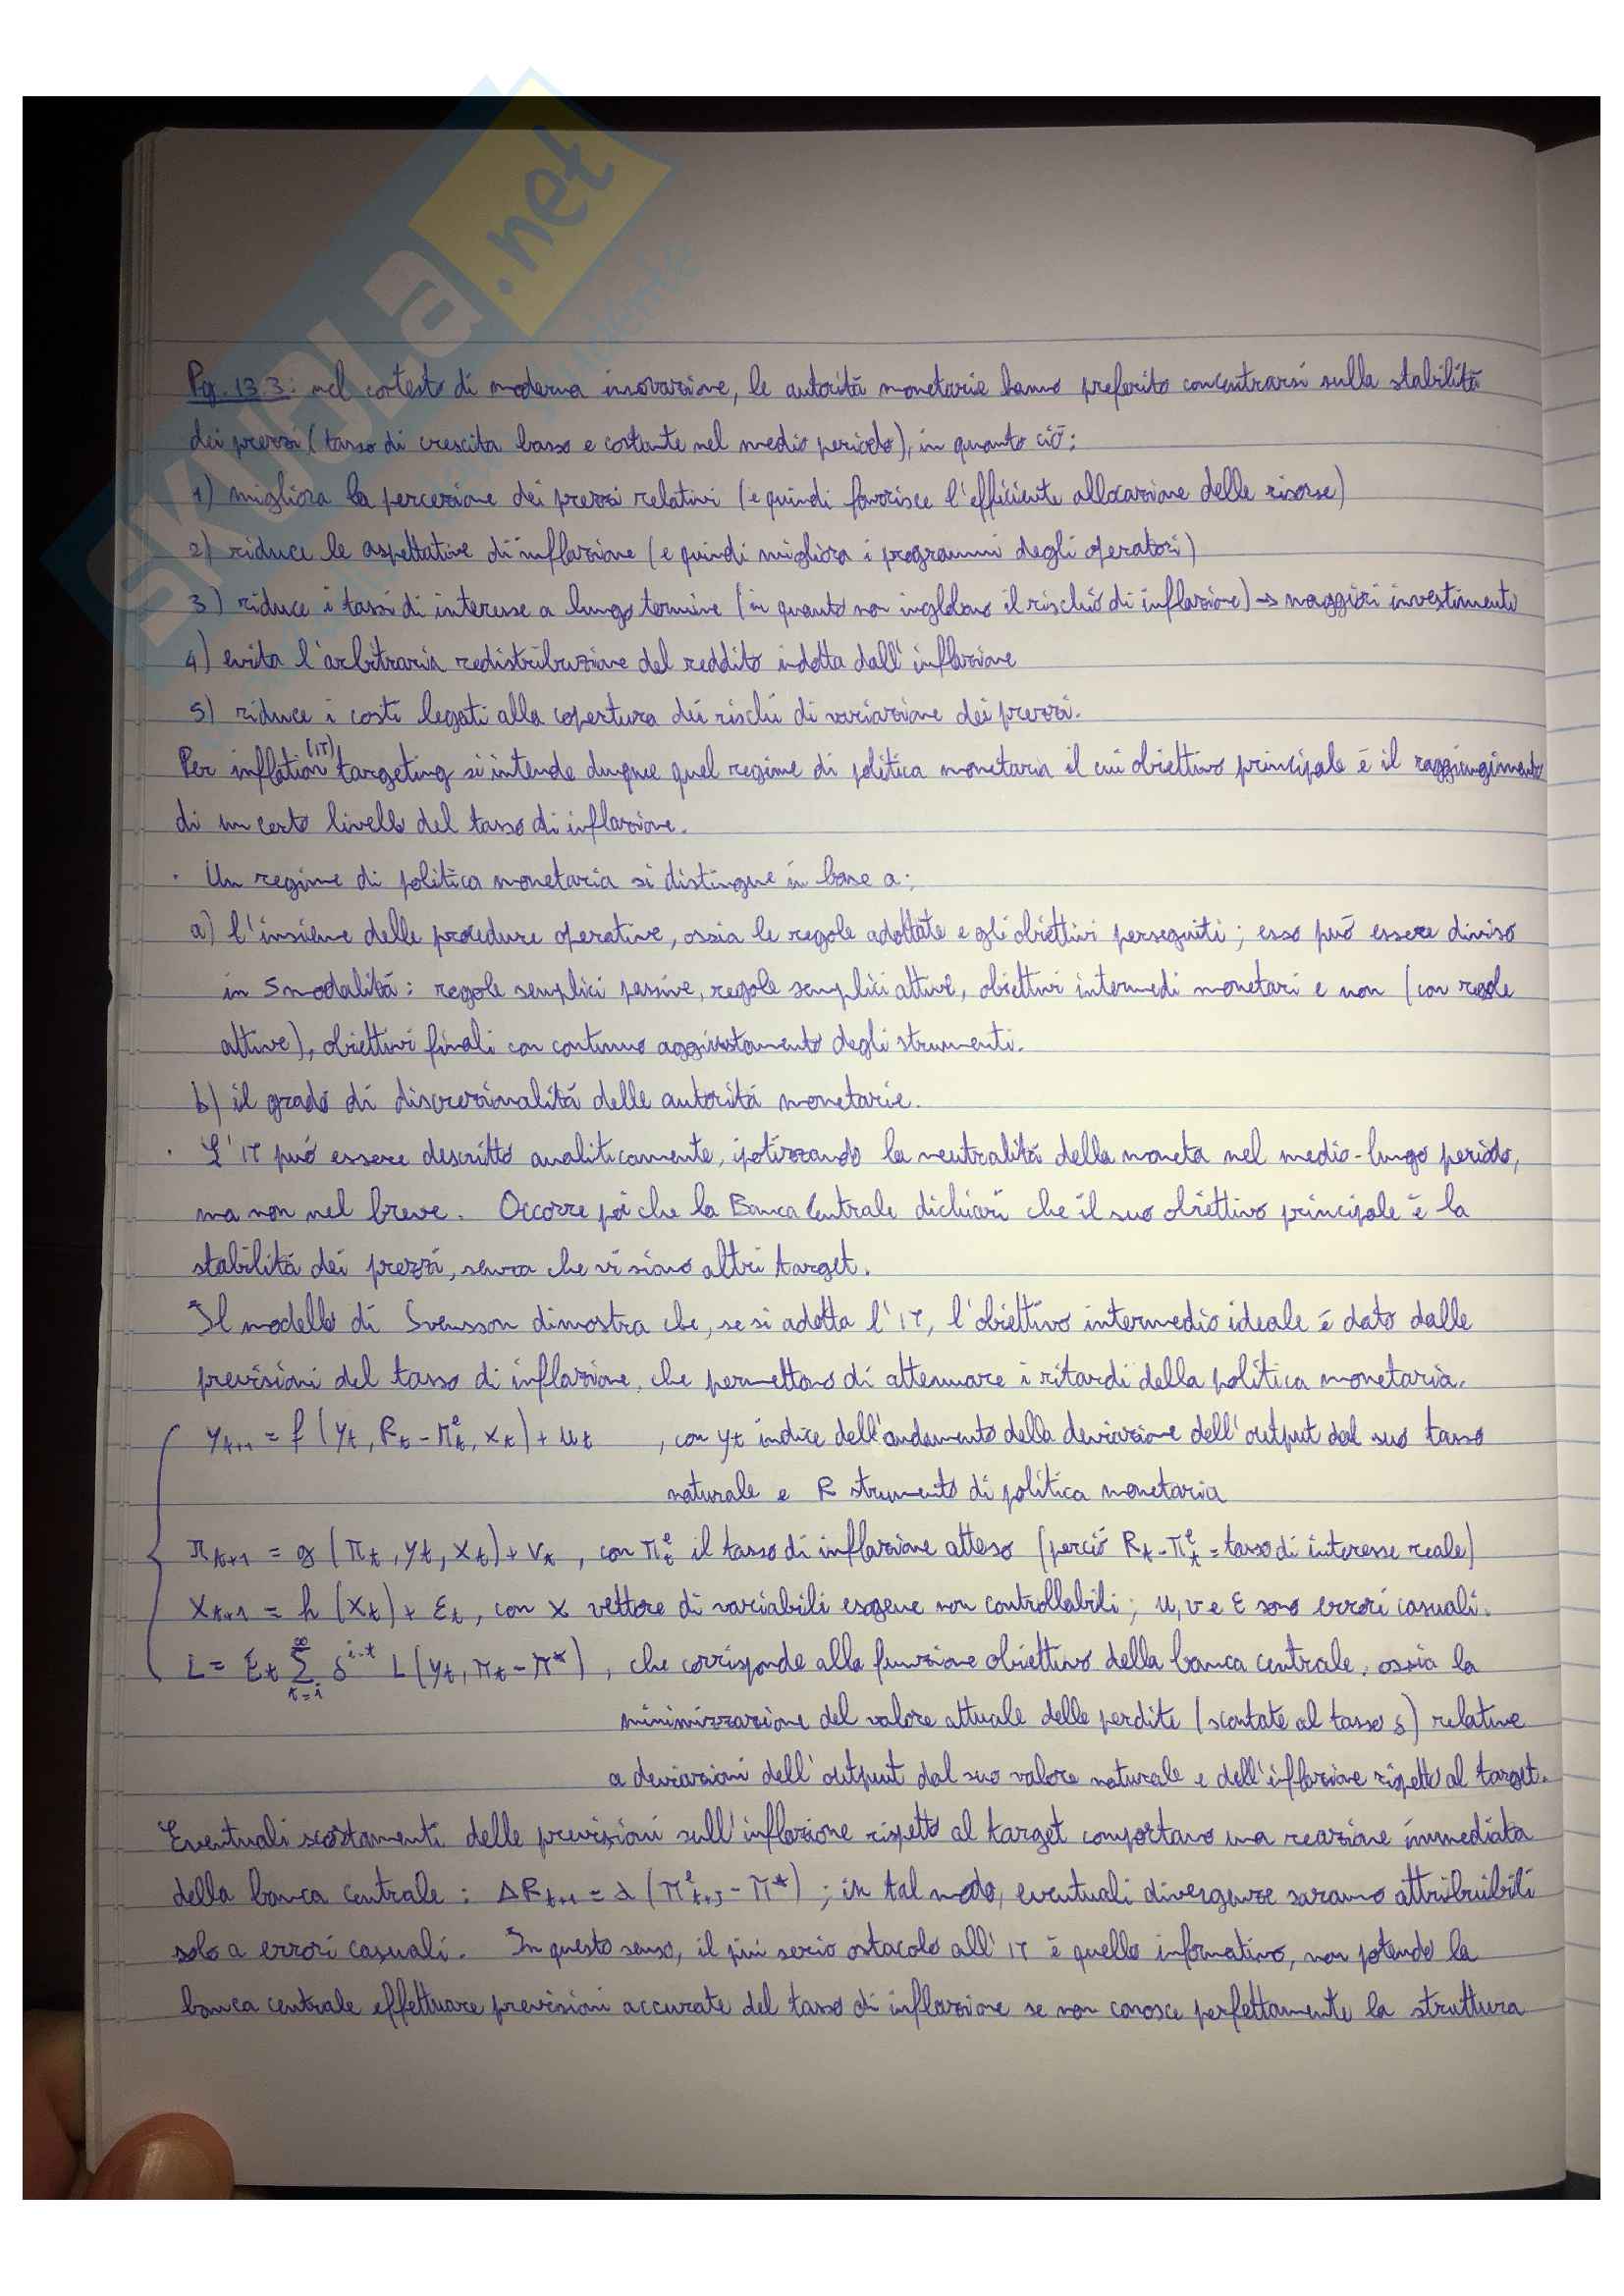 SKUOLA.net
Pg. 133: nel contesto di moderna innovazione, le autorità monetarie hanno preferito concentrarsi sulla stabilità
dei prezzi (tasso di crescita basso e costante nel medio periodo), in quanto ciò:
1) migliora la percezione dei prezzi relativi (e quindi favorisce l'efficiente allocazione delle risorse)
2) riduce le aspettative di inflazione (e quindi migliora i programmi degli operatori)
3) riduce i tassi di interesse a lungo termine (in quanto non inglobano il rischio di inflazione) → maggiori investimenti
4) evita l'arbitraria redistribuzione del reddito indotta dall'inflazione
5) riduce i costi legati alla copertura dei rischi di variazione dei prezzi.
Per inflation (IT) targeting si intende dunque quel regime di politica monetaria il cui obiettivo principale è il raggiungimento
di un certo livello del tasso di inflazione.
· Un regime di politica monetaria si distingue in base a:
a) l'insieme delle procedure operative, ossia le regole adottate e gli obiettivi perseguiti; esso può essere diviso
in 5 modalità: regole semplici passive, regole semplici attive, obiettivi intermedi monetari e non (con regole
attive), obiettivi finali con continuo aggiustamento degli strumenti.
b) il grado di discrezionalità delle autorità monetarie.
· L'IT può essere descritto analiticamente, ipotizzando la neutralità della moneta nel medio-lungo periodo,
ma non nel breve. Occorre poi che la Banca Centrale dichiari che il suo obiettivo principale è la
stabilità dei prezzi, senza che vi siano altri target.
Il modello di Svensson dimostra che, se si adotta l'IT, l'obiettivo intermedio ideale è dato dalle
previsioni del tasso di inflazione, che permettono di attenuare i ritardi della politica monetaria.
y_{t+1} = f (y_t, R_t - π^e_t, x_t) + u_t , con y_t indice dell'andamento della deviazione dell'output dal suo tasso
naturale e R strumento di politica monetaria
π_{t+1} = g (π_t, y_t, x_t) + v_t , con π^e_t il tasso di inflazione atteso (perciò R_t - π^e_t = tasso di interesse reale)
x_{t+1} = h (x_t) + ε_t , con x vettore di variabili esogene non controllabili; u, v e ε sono errori casuali.
L = E_t ∑_{t=i}^∞ δ^{i-t} L (y_t, π_t - π*) , che corrisponde alla funzione obiettivo della banca centrale, ossia la
minimizzazione del valore attuale delle perdite (scontate al tasso δ) relative
a deviazioni dell'output dal suo valore naturale e dell'inflazione rispetto al target.
Eventuali scostamenti delle previsioni sull'inflazione rispetto al target comportano una reazione immediata
della banca centrale: ΔR_{t+1} = λ (π^e_{t+j} - π*) ; in tal modo, eventuali divergenze saranno attribuibili
solo a errori casuali. In questo senso, il più serio ostacolo all'IT è quello informativo, non potendo la
banca centrale effettuare previsioni accurate del tasso di inflazione se non conosce perfettamente la struttura